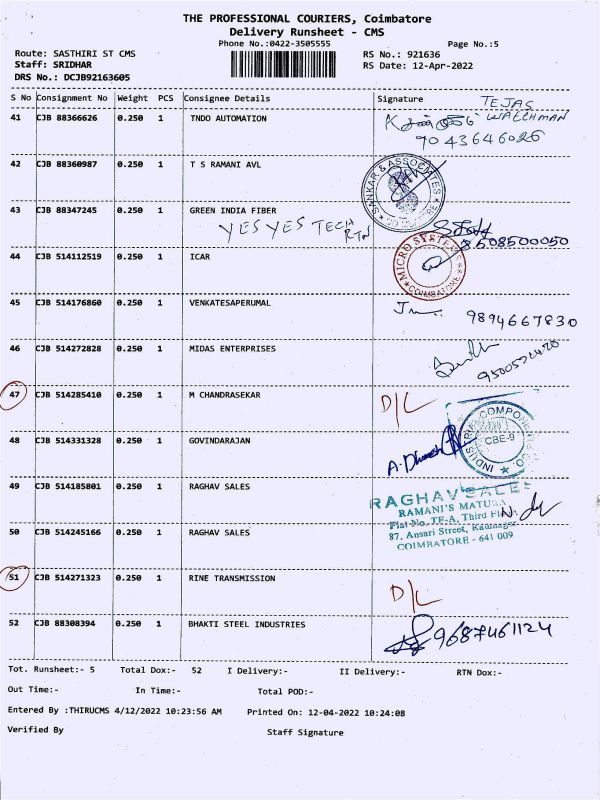 THE PROFESSIONAL COURIERS, Coimbatore
Delivery Runsheet - CMS
Phone No.:0422-3505555
Page No.:5
Route: SASTHIRI ST CMS
RS No.: 921636
Staff: SRIDHAR
RS Date: 12-Apr-2022
DRS No.: DCJB92163605
S No Consignment No Weight PCS Consignee Details Signature
TEJAS
WATCHMAN
41 CJB 88366626 0.250 1 TNDO AUTOMATION
9043646026
42 CJB 88360987 0.250 1 T S RAMANI AVL
SANKAR & ASSOCIATES
43 CJB 88347245 0.250 1 GREEN INDIA FIBER
YES YES TECH
RTN
8508500050
44 CJB 514112519 0.250 1 ICAR
MICRO SYSTEM
COIMBATORE
45 CJB 514176860 0.250 1 VENKATESAPERUMAL
9894667830
46 CJB 514272828 0.250 1 MIDAS ENTERPRISES
47 CJB 514285410 0.250 1 M CHANDRASEKAR
D/L
48 CJB 514331328 0.250 1 GOVINDARAJAN
CBE-9
49 CJB 514185801 0.250 1 RAGHAV SALES
RAGHAV SALES
RAMANI'S
Flat No. TF-A, Third
50 CJB 514245166 0.250 1 RAGHAV SALES
87, Ansari Street,
COIMBATORE - 641 009
51 CJB 514271323 0.250 1 RINE TRANSMISSION
D/L
52 CJB 88308394 0.250 1 BHAKTI STEEL INDUSTRIES
9687461124
Tot. Runsheet:- 5 Total Dox:- 52 I Delivery:- II Delivery:- RTN Dox:-
Out Time:- In Time:- Total POD:-
Entered By :THIRUCMS 4/12/2022 10:23:56 AM Printed On: 12-04-2022 10:24:08
Verified By Staff Signature